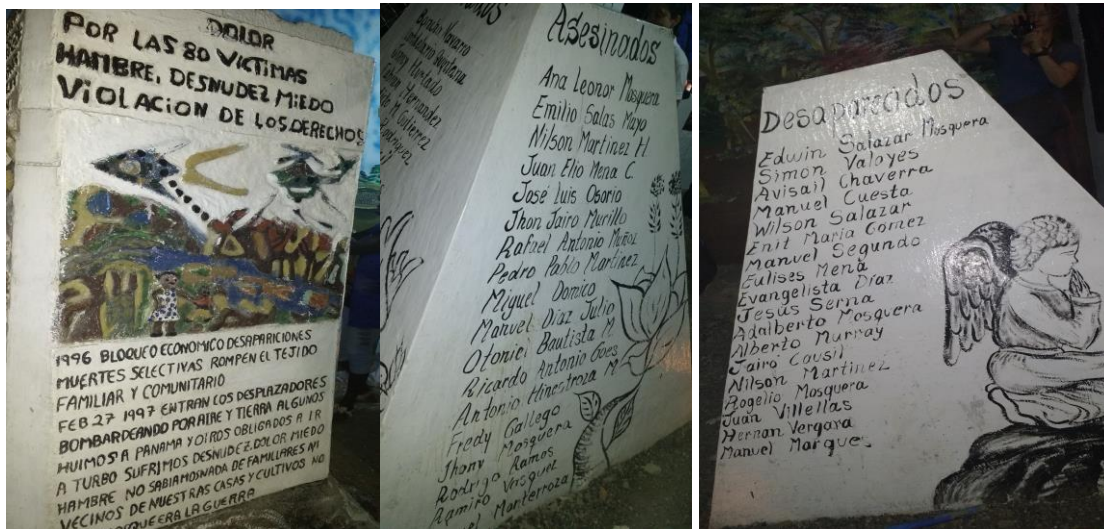 DOLOR
POR LAS 80 VICTIMAS
HAMBRE, DESNUDEZ MIEDO
VIOLACION DE LOS DERECHOS
1996 BLOQUEO ECONOMICO DESAPARICIONES
MUERTES SELECTIVAS ROMPEN EL TEJIDO
FAMILIAR Y COMUNITARIO
FEB 27 1997 ENTRAN LOS DESPLAZADORES
BOMBARDEANDO POR AIRE Y TIERRA ALGUNOS
HUIMOS A PANAMA Y OTROS OBLIGADOS A IR
A TURBO SUFRIMOS DESNUDEZ. DOLOR MIEDO
HAMBRE NO SABIAMOS NADA DE FAMILIARES NI
VECINOS DE NUESTRAS CASAS Y CULTIVOS NO
QUE ERA LA GUERRA
Navarro
Hurtado
Hernandez
Gutierrez
Rodriguez
Asesinados
Ana Leonor Mosquera
Emilio Salas Mayo
Nilson Martinez H
Juan Elio Mena C.
José Luis Osorio
Jhon Jairo Murillo
Rafael Antonio Muñoz
Pedro Pablo Martinez
Miguel Domico
Manuel Diaz Julio
Otonici Bautista M.
Ricardo Antonio Goes
Antonio Hinestroza M
Fredy Gallego
Jhony Mosquera
Rodrigo Ramos
Ramiro Vasquez
Manterroza
Desaparecidos
Edwin Salazar Mosquera
Simon Valoyes
Avisail Chaverra
Manuel Cuesta
Wilson Salazar
Enit Maria Gomez
Manuel Segundo
Eulises Mena
Evangelista Díaz
Jesús Serna
Adalberto Mosquera
Alberto Murray
Jairo Causil
Nilson Martinez
Rogelio Mosquera
Juan Villellas
Hernan Vergara
Manuel Marque